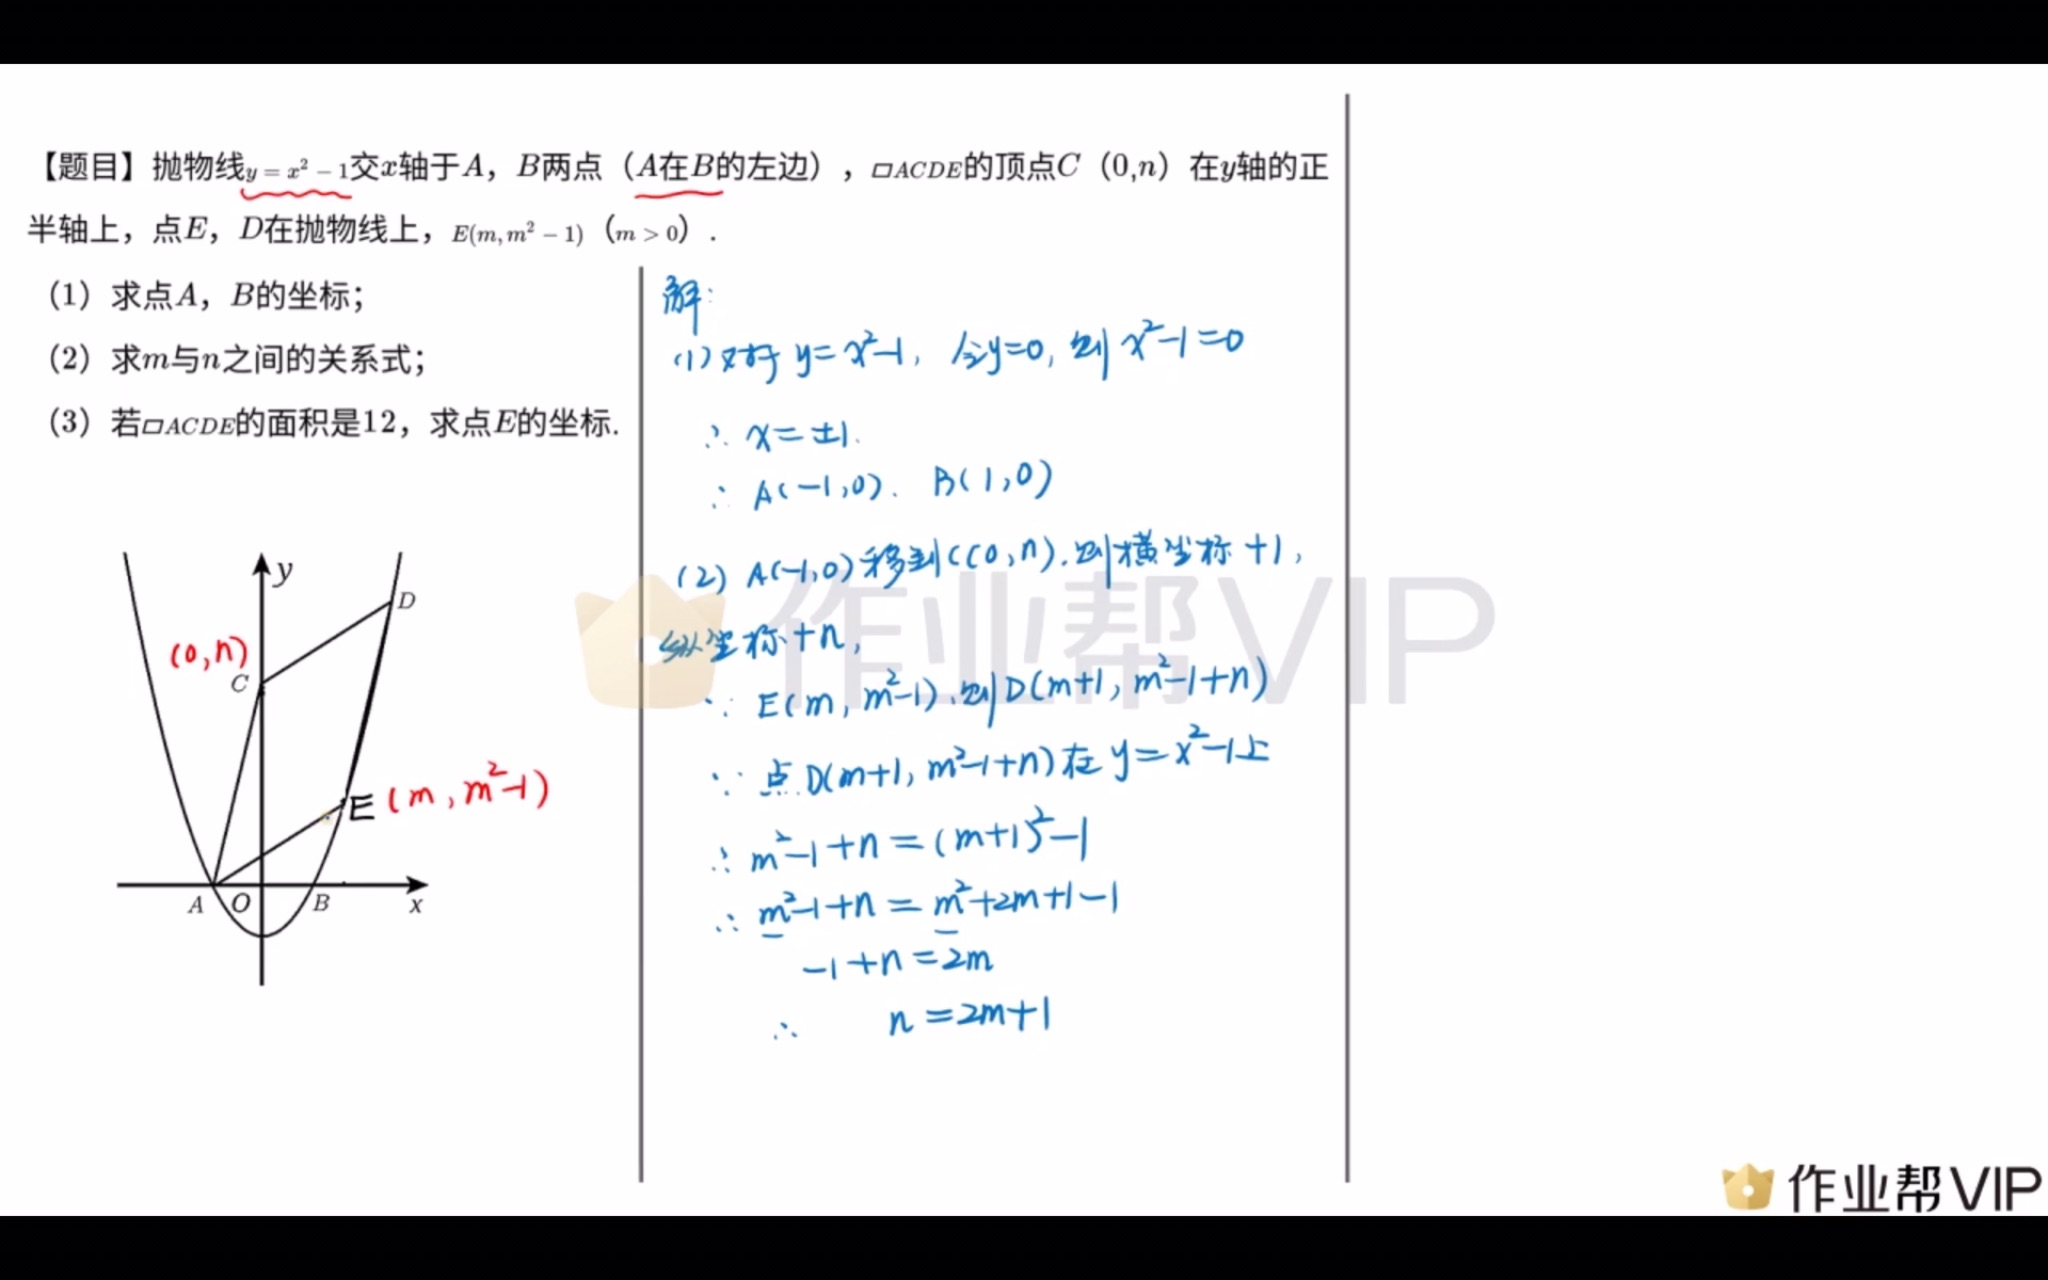 【题目】抛物线y = x² − 1交x轴于A，B两点（A在B的左边），▱ACDE的顶点C（0,n）在y轴的正
半轴上，点E，D在抛物线上，E(m, m² − 1)（m > 0）.
（1）求点A，B的坐标；
（2）求m与n之间的关系式；
（3）若▱ACDE的面积是12，求点E的坐标.
y
D
(0,n)
C
E (m, m²-1)
A O B x
解:
(1) 对于 y=x²-1, 令y=0, 则 x²-1=0
∴ x=±1.
∴ A(-1,0). B(1,0)
(2) A(-1,0)移到C(0,n).则横坐标+1,
纵坐标+n,
∵ E(m, m²-1).则D(m+1, m²-1+n)
∵ 点D(m+1, m²-1+n)在 y=x²-1上
∴ m²-1+n=(m+1)²-1
∴ m²-1+n=m²+2m+1-1
-1+n=2m
∴ n=2m+1
作业帮VIP
作业帮VIP